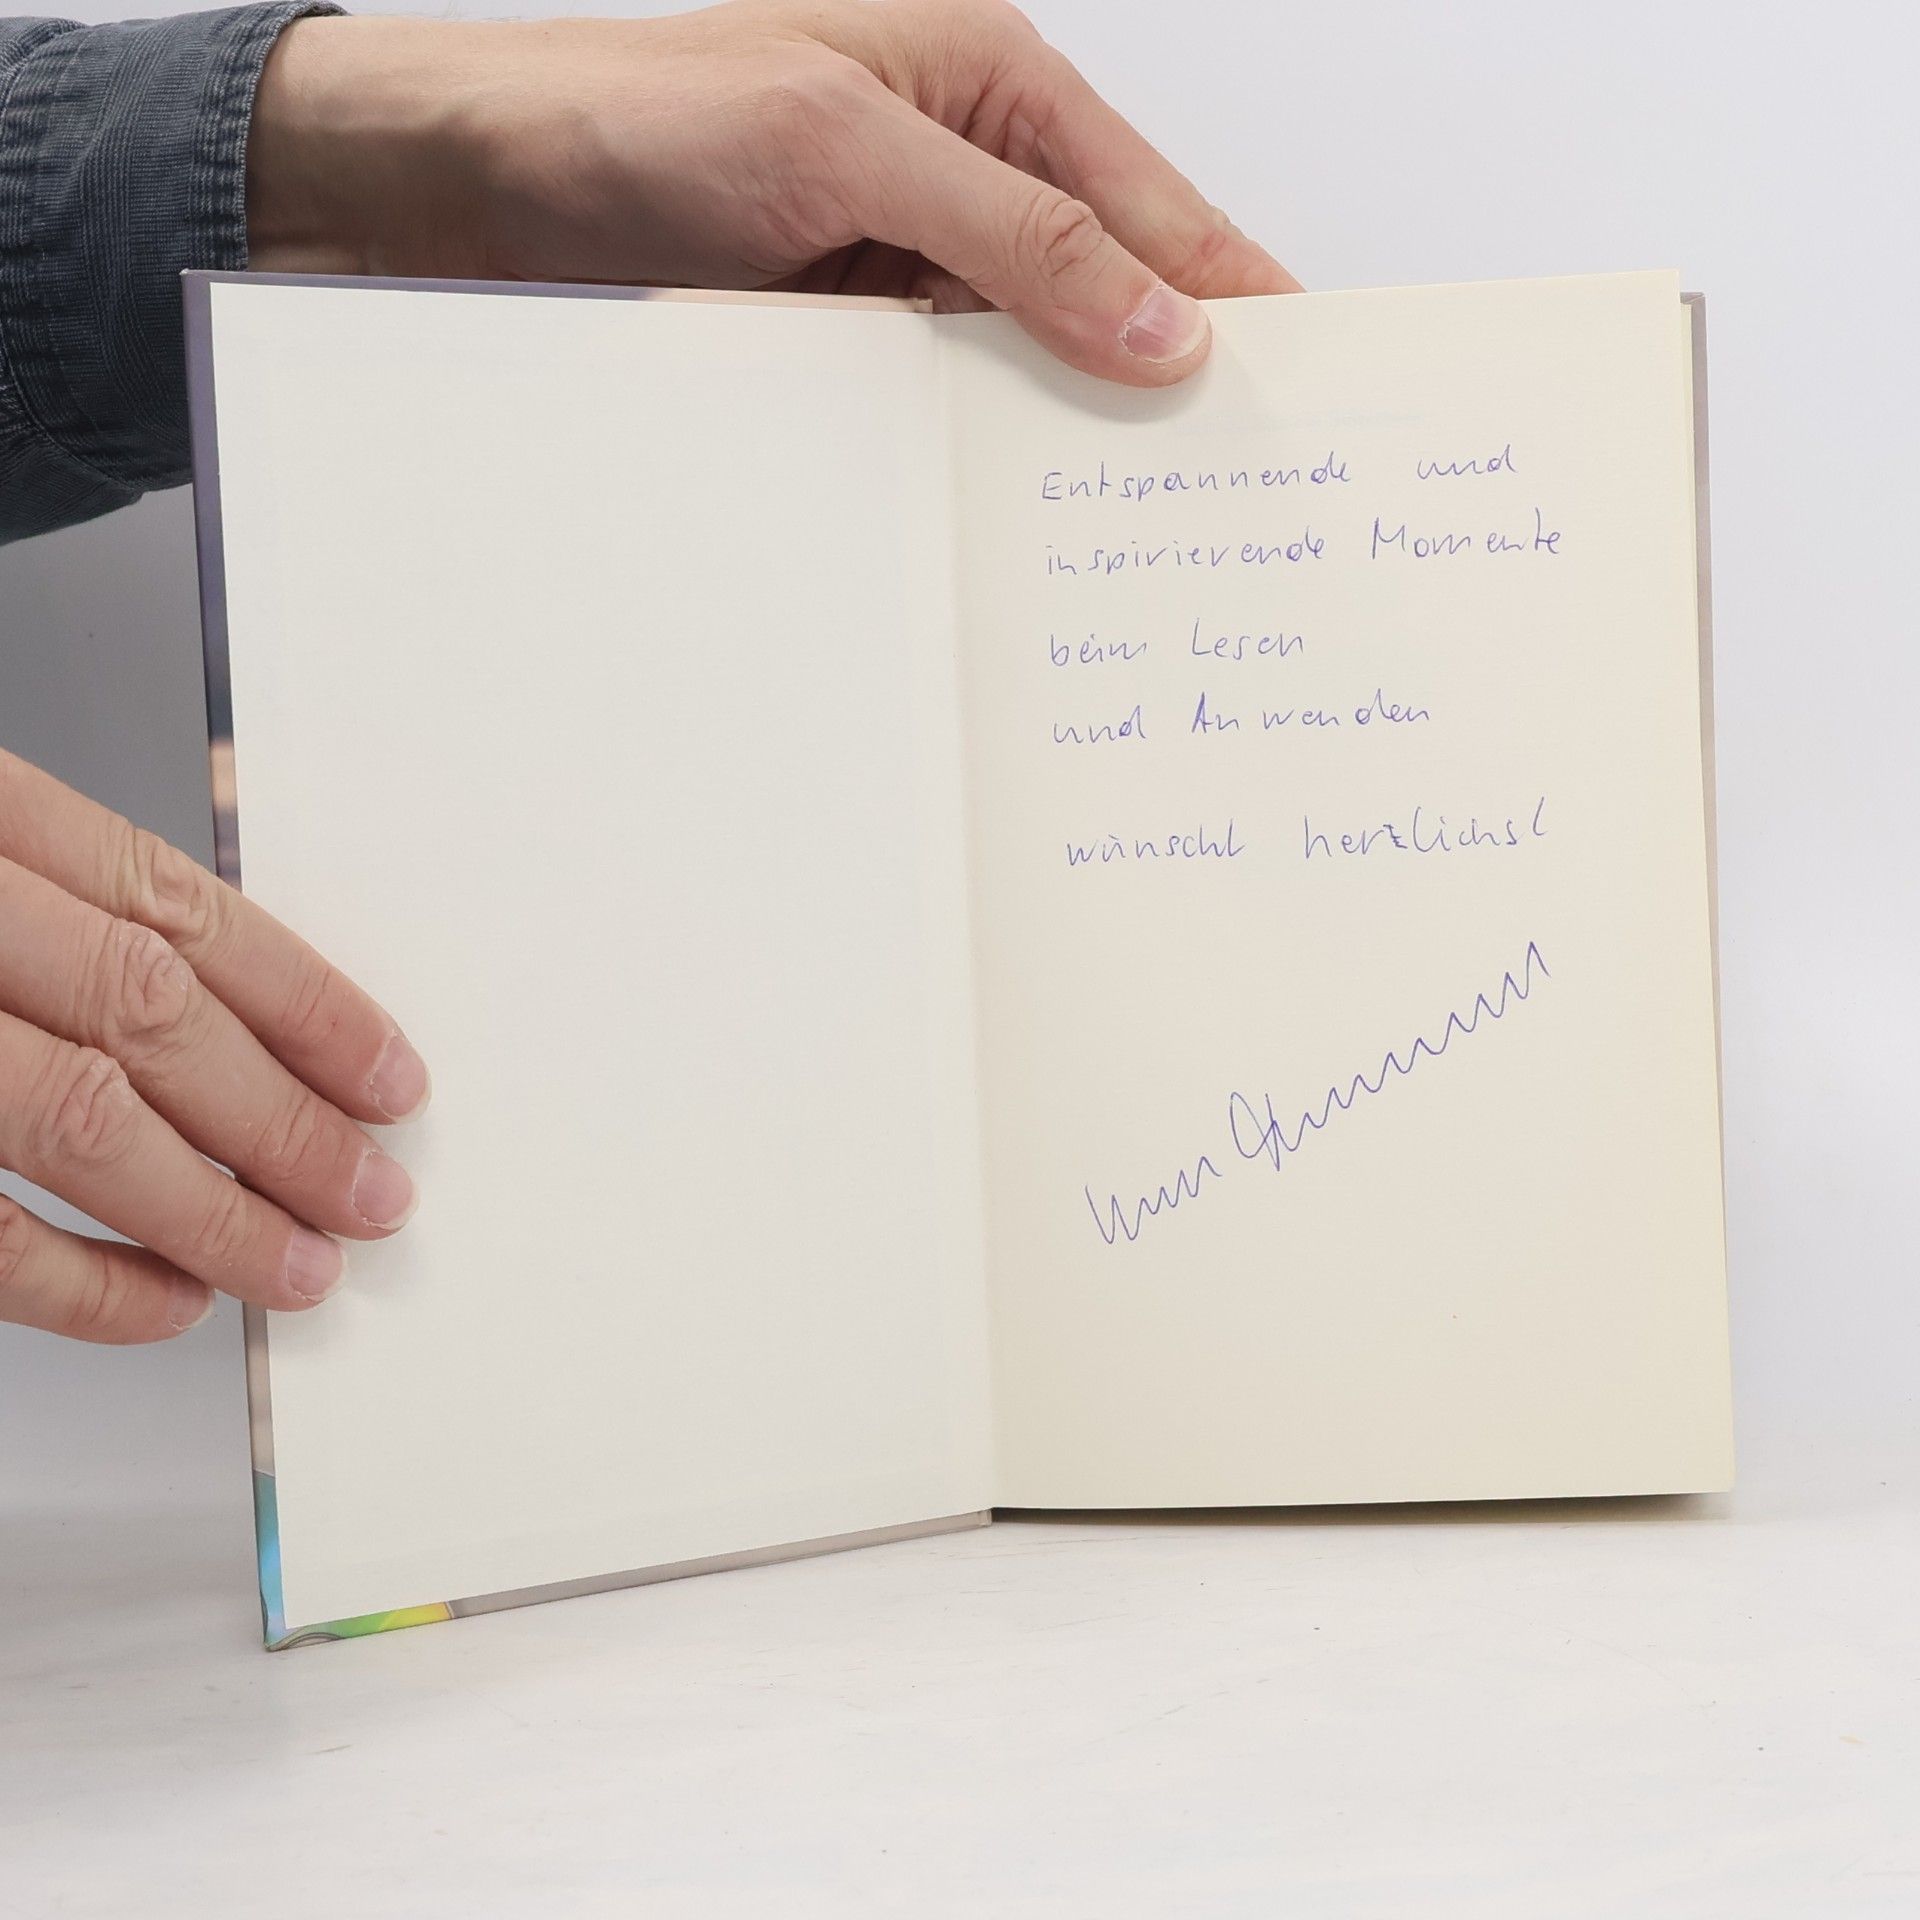 Entspannende und
inspirierende Momente
beim Lesen
und Anwenden
wünscht herzlichst